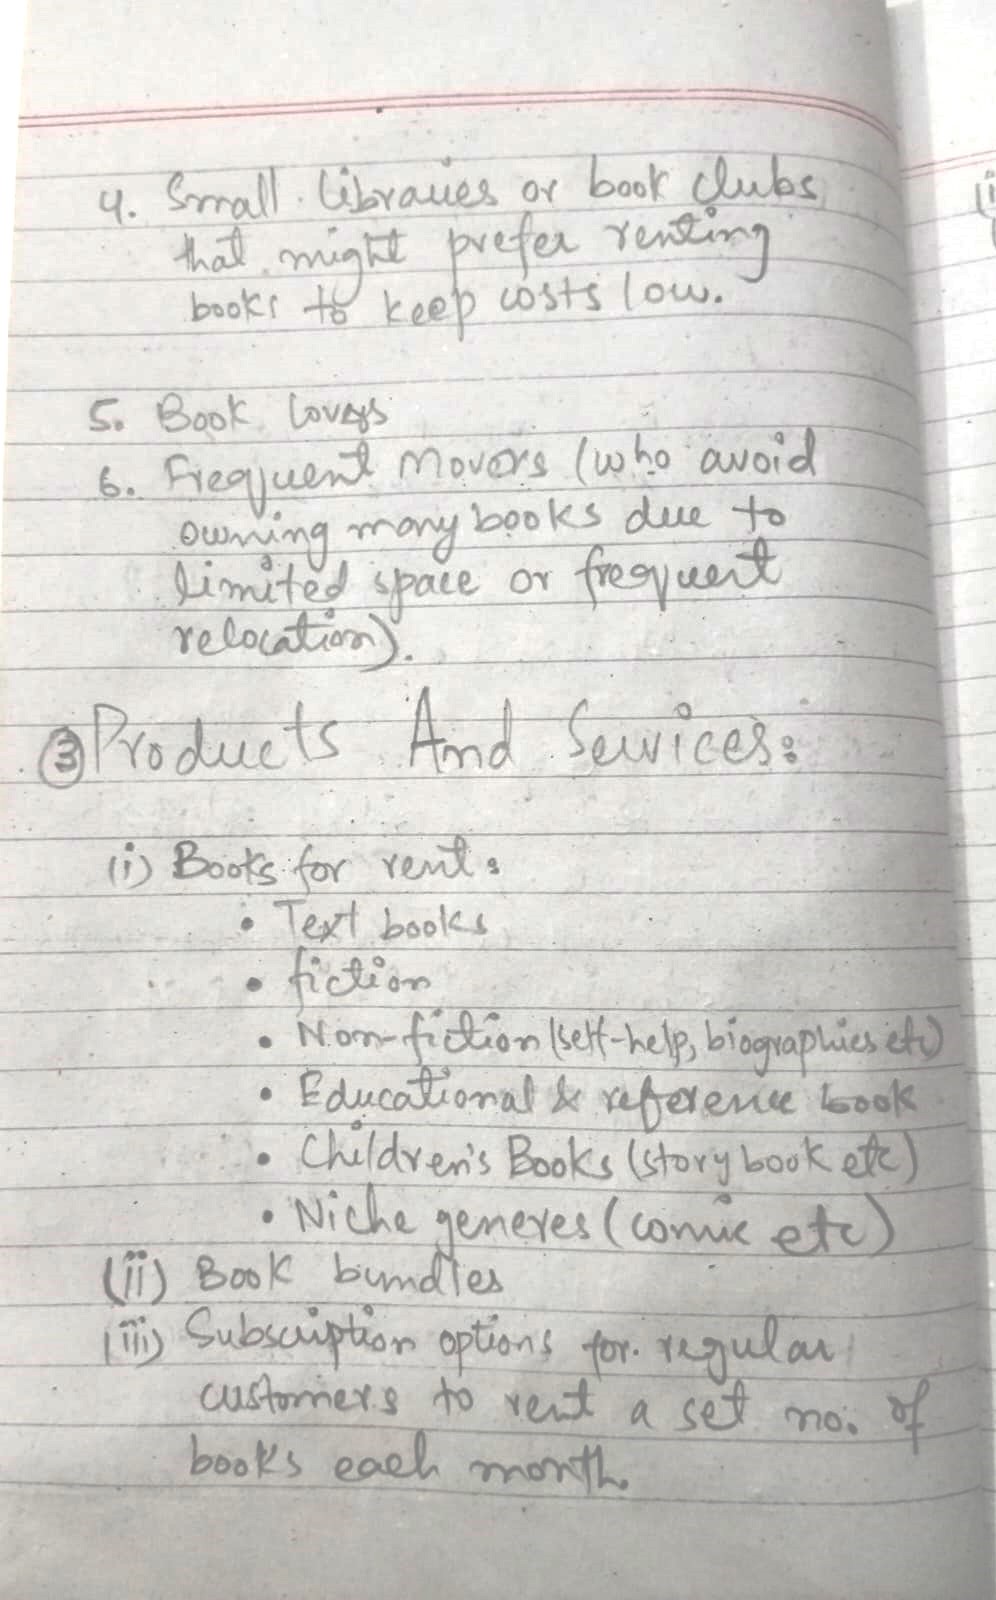 4. Small libraries or book clubs
that might prefer renting
books to keep costs low.
5. Book lovers
6. Frequent Movers (who avoid
owning many books due to
limited space or frequent
relocation).
③ Products And Services:
(i) Books for rent:
• Text books
• fiction
• Non-fiction (self-help, biographies etc)
• Educational & reference book
• Children's Books (story book etc)
• Niche generes (comic etc)
(ii) Book bundles
(iii) Subscription options for regular
customers to rent a set no. of
books each month.